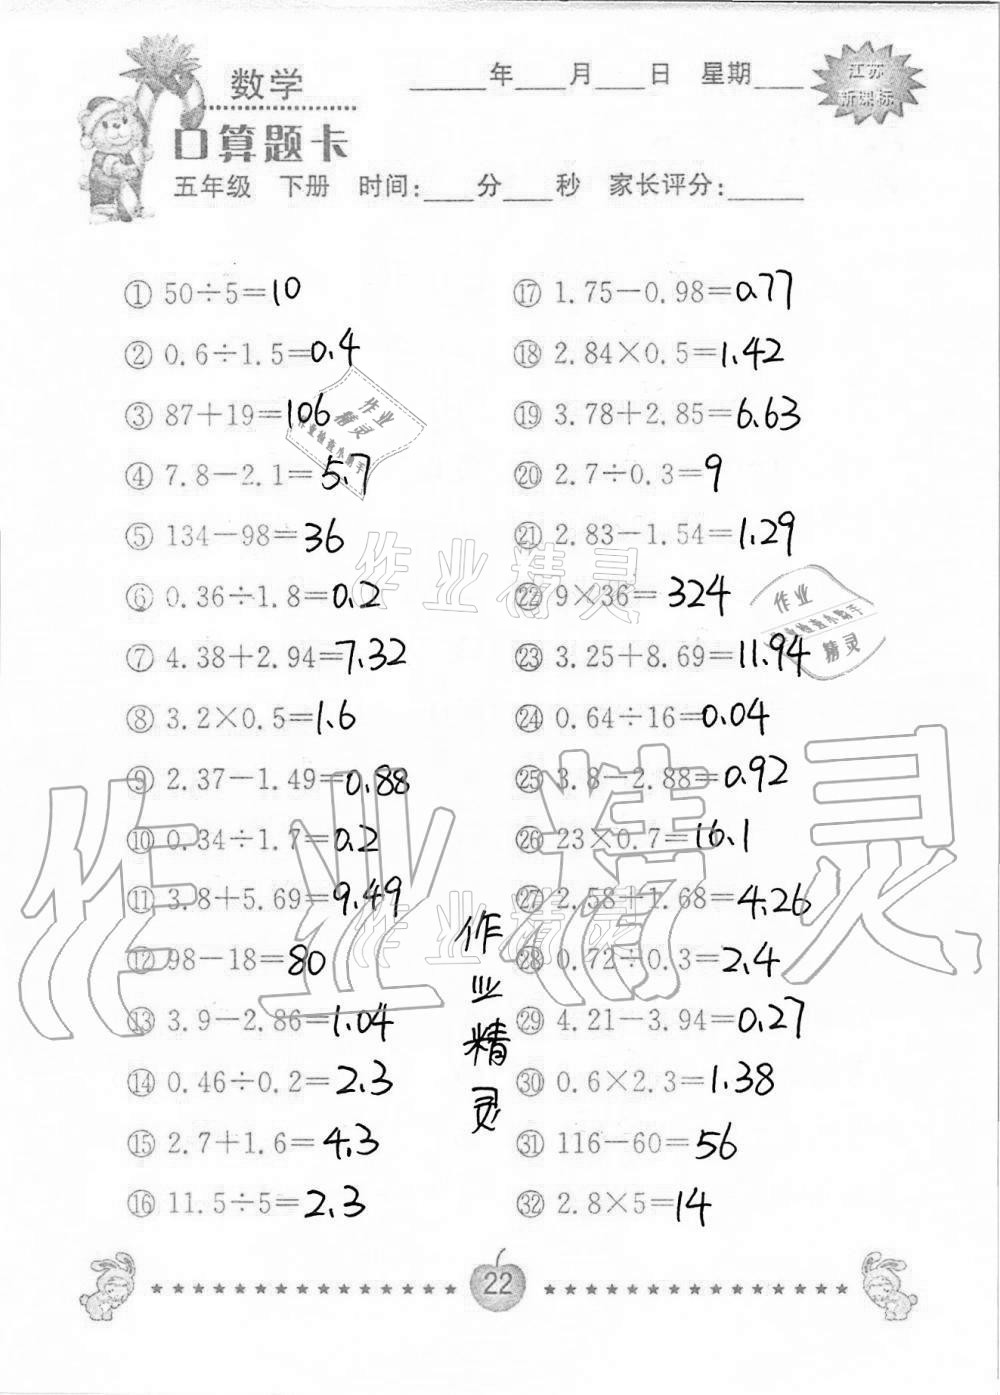 数学
____年___月___日 星期___
江苏
新课标
口算题卡
五年级 下册 时间:___分___秒 家长评分:_____
① 50÷5=10
② 0.6÷1.5=0.4
③ 87+19=106
④ 7.8-2.1=5.7
⑤ 134-98=36
⑥ 0.36÷1.8=0.2
⑦ 4.38+2.94=7.32
⑧ 3.2×0.5=1.6
⑨ 2.37-1.49=0.88
⑩ 0.34÷1.7=0.2
⑪ 3.8+5.69=9.49
⑫ 98-18=80
⑬ 3.9-2.86=1.04
⑭ 0.46÷0.2=2.3
⑮ 2.7+1.6=4.3
⑯ 11.5÷5=2.3
⑰ 1.75-0.98=0.77
⑱ 2.84×0.5=1.42
⑲ 3.78+2.85=6.63
⑳ 2.7÷0.3=9
㉑ 2.83-1.54=1.29
㉒ 9×36=324
㉓ 3.25+8.69=11.94
㉔ 0.64÷16=0.04
㉕ 3.8-2.88=0.92
㉖ 23×0.7=16.1
㉗ 2.58+1.68=4.26
㉘ 0.72÷0.3=2.4
㉙ 4.21-3.94=0.27
㉚ 0.6×2.3=1.38
㉛ 116-60=56
㉜ 2.8×5=14
作业精灵
作业精灵
作业精灵
作业精灵
作业
精灵
作业检查小助手
作业
作业检查小助手
精灵
22